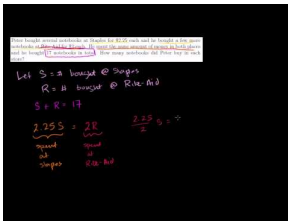 Peter bought several notebooks at Staples for $2.25 each and he bought a few more
notebooks at Rite-Aid for $2 each. He spent the same amount of money in both places
and he bought 17 notebooks in total. How many notebooks did Peter buy in each
store?
Let S = # bought @ Staples
R = # bought @ Rite-Aid
S + R = 17
2.25 S = 2R
2.25/2 S =
spent at Staples
spent at Rite-Aid